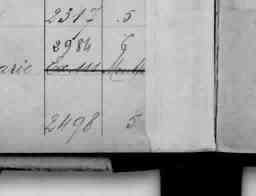 2317 5
2984 6
arie
2498 5